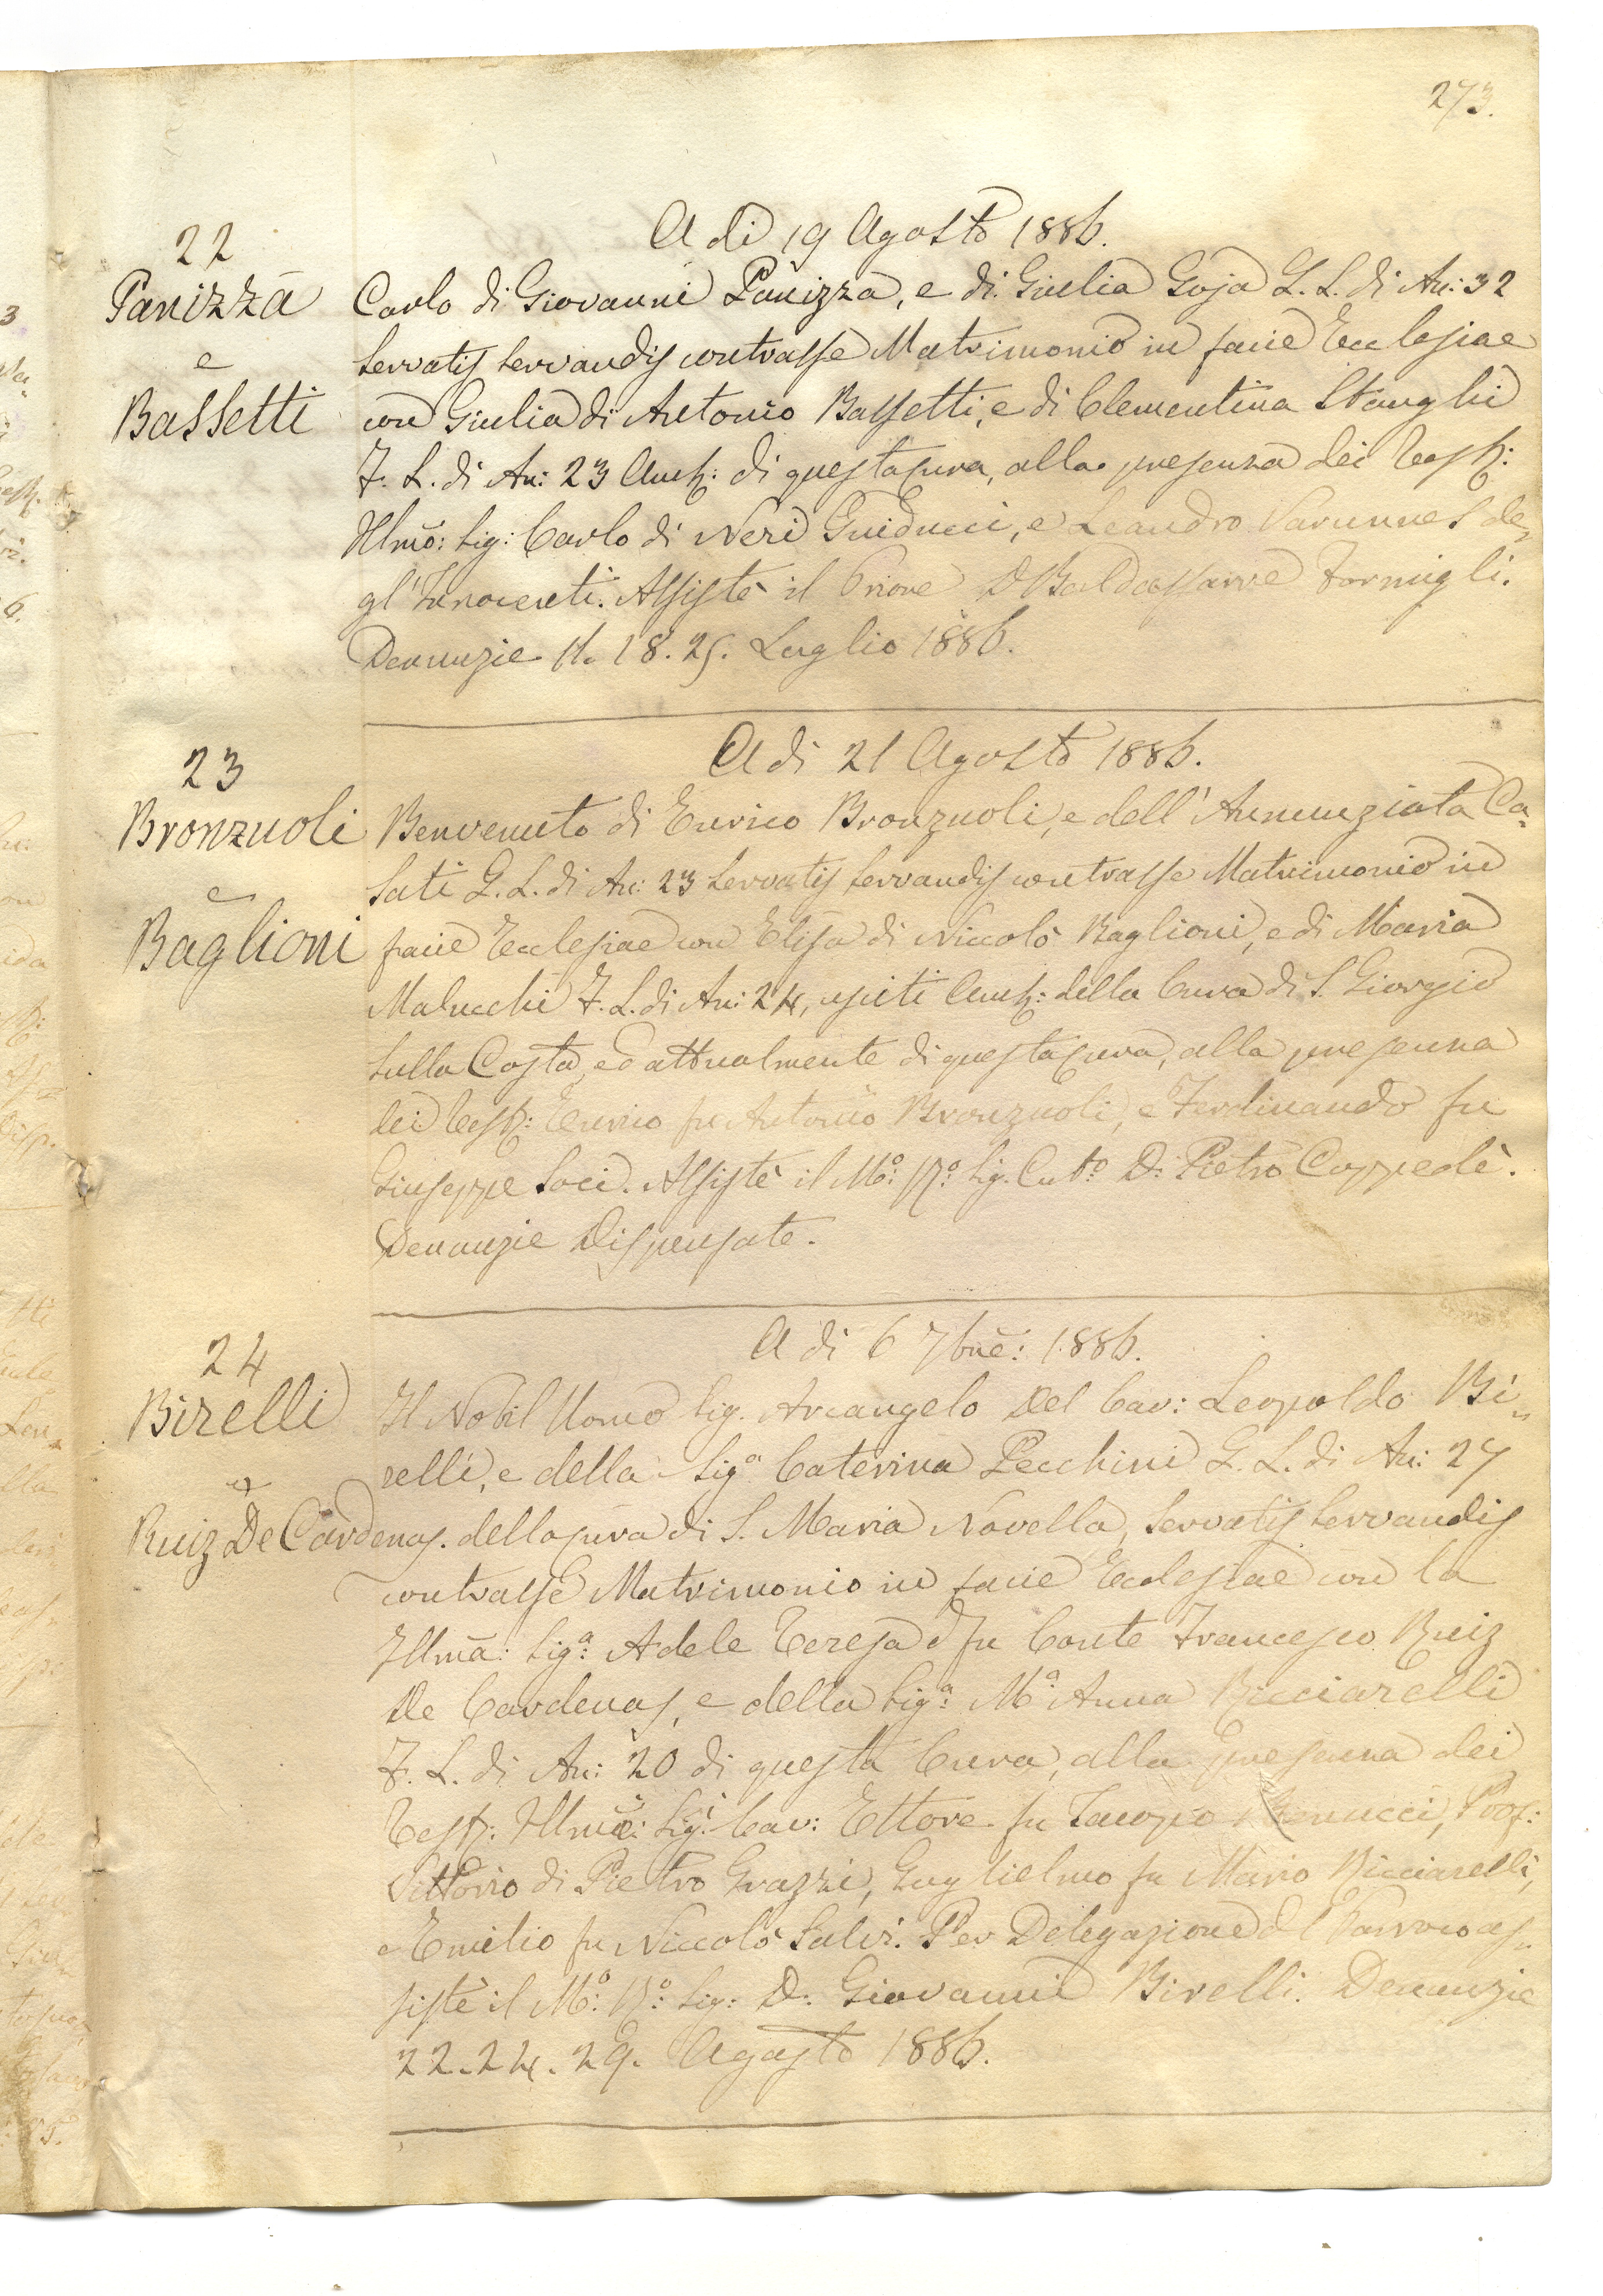 273.
A dì 19 Agosto 1886.
22
Panizza
e
Bassetti
Carlo di Giovanni Panizza, e di Giulia Goja G. L. di An: 32
servatis servandis contrasse Matrimonio in facie Ecclesiae
con Giulia di Antonio Bassetti, e di Clementina Stanghi
F. L. di An: 23 Amb: di questa cura, alla presenza dei Test:
Illmo: Sig: Carlo di Neri Guiducci, e Leandro de„
gl'Innocenti. Assistè il Priore D Baldassarre Formigli.
Denunzie 11. 18. 25. Luglio 1886.
A dì 21 Agosto 1886.
23
Bronzuoli
e
Baglioni
Benvenuto di Enrico Bronzuoli, e dell'Annunziata Ca„
sati G. L. di An: 23 servatis servandis contrasse Matrimonio in
facie Ecclesiae con Elisa di Niccolò Baglioni, e di Maria
Malucchi F. L. di An: 24, Amb: della Cura di S. Giorgio
sulla Costa, ed attualmente di questa cura, alla presenza
dei Test: Enrico fu Antonio Bronzuoli, e Ferdinando fu
Giuseppe Soci. Assistè il M:o R:o Sig. Cur:to D: Pietro Coppedè.
Denunzie Dispensate.
A dì 6 7bre: 1886.
24
Birelli
e
Ruiz De Cardenas.
Il Nobil Uomo Sig. Arcangelo Del Cav: Leopoldo Bi„
relli, e della Sig:a Caterina Pecchini G. L. di An: 27
della cura di S. Maria Novella, servatis servandis
contrasse Matrimonio in facie Ecclesiae con la
Illma: Sig:a Adele Teresa d fu Conte Francesco Ruiz
De Cardenas, e della Sig:a M:a Anna Ricciarelli
F. L. di An: 20 di questa Cura, alla presenza dei
Test: Illmi: Sig: Cav: Ettore fu Jacopo Prof:
Vittorio di Pietro Grazzi, Guglielmo fu Mario Ricciarelli,
e Emilio fu Niccolò Salvi. Per Delegazione del Parroco as„
sistè il M:o R:o Sig: D: Giovanni Birelli. Denunzie
22. 24. 29. Agosto 1886.